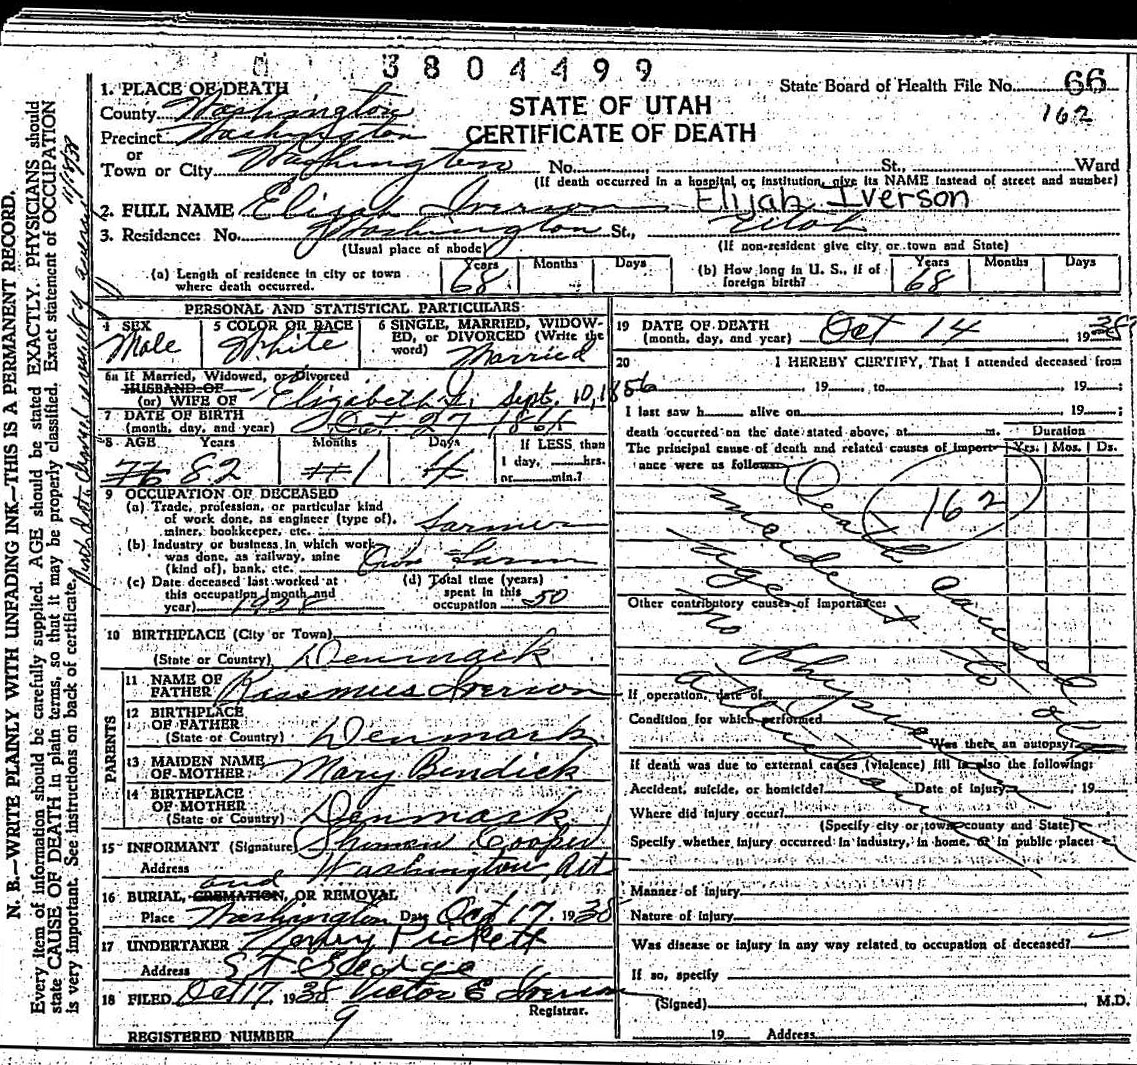 3804499
State Board of Health File No. 66
162
STATE OF UTAH
CERTIFICATE OF DEATH
1. PLACE OF DEATH
County Washington
Precinct Washington
or
Town or City Washington No. St., Ward
(If death occurred in a hospital or institution, give its NAME instead of street and number)
2. FULL NAME Elijah Iverson Elijah Iverson
3. Residence: No. Washington St., Utah
(Usual place of abode) (If non-resident give city or town and State)
(a) Length of residence in city or town where death occurred. Years 68 Months Days
(b) How long in U. S., if of foreign birth? Years 68 Months Days
PERSONAL AND STATISTICAL PARTICULARS
4 SEX Male
5 COLOR OR RACE White
6 SINGLE, MARRIED, WIDOWED, or DIVORCED (Write the word) Married
6a If Married, Widowed, or Divorced
HUSBAND OF
(or) WIFE OF Elizabeth
Sept. 10, 1856
7 DATE OF BIRTH
(month, day, and year) Oct. 27
8 AGE Years 82 Months 1 Days 4
If LESS than
1 day, hrs.
or min.?
9 OCCUPATION OF DECEASED
(a) Trade, profession, or particular kind
of work done, as engineer (type of),
miner, bookkeeper, etc. farmer
(b) Industry or business in which work
was done, as railway, mine
(kind of), bank, etc. Own Farm
(c) Date deceased last worked at
this occupation (month and
year) 1928
(d) Total time (years)
spent in this
occupation 50
10 BIRTHPLACE (City or Town)
(State or Country) Denmark
PARENTS
11 NAME OF
FATHER Rasemus Iverson
12 BIRTHPLACE
OF FATHER
(State or Country) Denmark
13 MAIDEN NAME
OF MOTHER Mary Bendick
14 BIRTHPLACE
OF MOTHER
(State or Country) Denmark
15 INFORMANT (Signature) Cooper
Address Washington, Ut
and
16 BURIAL, CREMATION, OR REMOVAL
Place Washington Date Oct 17, 1938
17 UNDERTAKER Pickett
Address St George
18 FILED Oct 17, 1938 Victor E Iverson
Registrar.
REGISTERED NUMBER 9
19 DATE OF DEATH
(month, day, and year) Oct 14 1938
20 I HEREBY CERTIFY, That I attended deceased from
19 , to 19 ;
I last saw h alive on 19 ;
death occurred on the date stated above, at m.
Duration
The principal cause of death and related causes of importance were as follows: Yrs. Mos. Ds.
162
Death caused
incident to old
age
No Physician
Other contributory causes of importance:
If operation, date of
Condition for which performed
Was there an autopsy?
If death was due to external causes (violence) fill in also the following:
Accident, suicide, or homicide? Date of Injury , 19
Where did injury occur?
(Specify city or town, county and State)
Specify whether injury occurred in industry, in home, or in public place:
Manner of injury
Nature of injury
Was disease or injury in any way related to occupation of deceased?
If so, specify
(Signed) , M.D.
19 Address
N. B.—WRITE PLAINLY WITH UNFADING INK—THIS IS A PERMANENT RECORD.
Every item of information should be carefully supplied. AGE should be stated EXACTLY. PHYSICIANS should
state CAUSE OF DEATH in plain terms, so that it may be properly classified. Exact statement of OCCUPATION
is very important. See instructions on back of certificate.